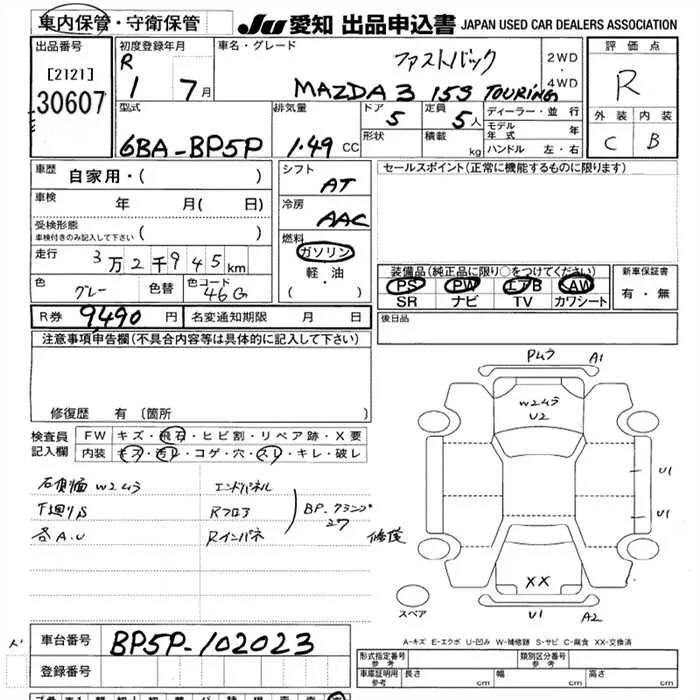 車内保管・守衛保管
JU 愛知 出品申込書 JAPAN USED CAR DEALERS ASSOCIATION
出品番号
[2121]
30607
初度登録年月
R 1 7月
車名・グレード
ファストバック
MAZDA 3 15S TOURING
2WD
・
4WD
評価点
R
外装 内装
C B
型式
6BA-BP5P
排気量
1.49 CC
ドア
5
定員
5人
形状
積載
kg
ディーラー・並行
モデル年式 年
ハンドル 左・右
車歴
自家用・( )
車検 年 月( 日)
受検形態
車検付きのみ記入して下さい ( )
走行 3万2千945km
色 グレー 色替 色コード 46G
シフト
AT
冷房
AAC
燃料
ガソリン
軽・油
( ・ )
セールスポイント(正常に機能するものに限ります)
装備品(純正品に限り○をつけてください)
PS PW エアB AW
SR ナビ TV カワシート
新車保証書
有・無
R券 9,490 円 名変通知期限 月 日
後日品
注意事項申告欄(不具合内容等は具体的に記入して下さい)
修復歴 有(箇所
検査員記入欄
FW キズ・飛石・ヒビ割・リペア跡・X要
内装 キズ・汚レ・コゲ・穴・スレ・キレ・破レ
W2ムラ エンドパネル
下廻りS Rフロア
各A.U Rインパネ
BP.クランプ
修復
Pムラ A1
W2ムラ
U2
U1
U1
XX
U1 A2
スペア
A-キズ E-エクボ U-凹み W-補修跡 S-サビ C-腐食 XX-交換済
車台番号 BP5P-102023
登録番号
形式指定番号 参考
類別区分番号 参考
車庫証明用 参考 長さ cm 幅 cm 高さ cm